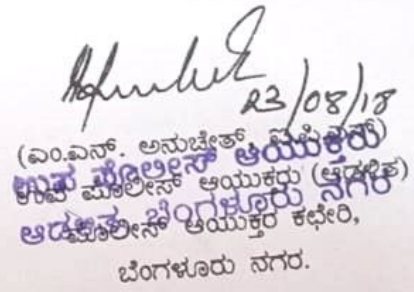 23/08/18
(ಎಂ.ಎನ್. ಅನುಚೇತ್, ಐ.ಪಿ.ಎಸ್)
ಉಪ ಪೊಲೀಸ್ ಆಯುಕ್ತರು (ಆಡಳಿತ)
ಪೊಲೀಸ್ ಆಯುಕ್ತರ ಕಛೇರಿ,
ಬೆಂಗಳೂರು ನಗರ.
ಉಪ ಪೊಲೀಸ್ ಆಯುಕ್ತರು
ಆಡಳಿತ, ಬೆಂಗಳೂರು ನಗರ